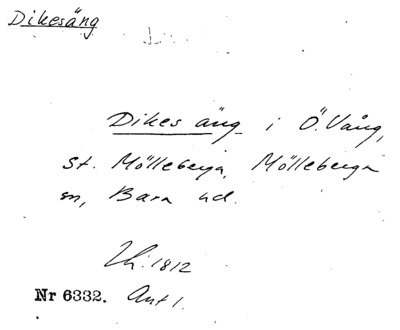 Dikesäng
Dikes äng i Ö. Vång,
St. Mölleberga, Mölleberga
sn, Bara hd.
1812
Nr 6332. Ant 1.